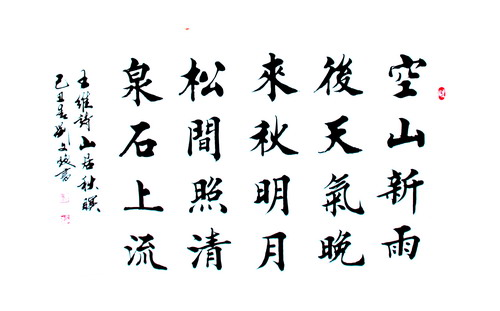 空山新雨
後天氣晚
來秋明月
松間照清
泉石上流
王維詩山居秋暝
己丑 劉文 書